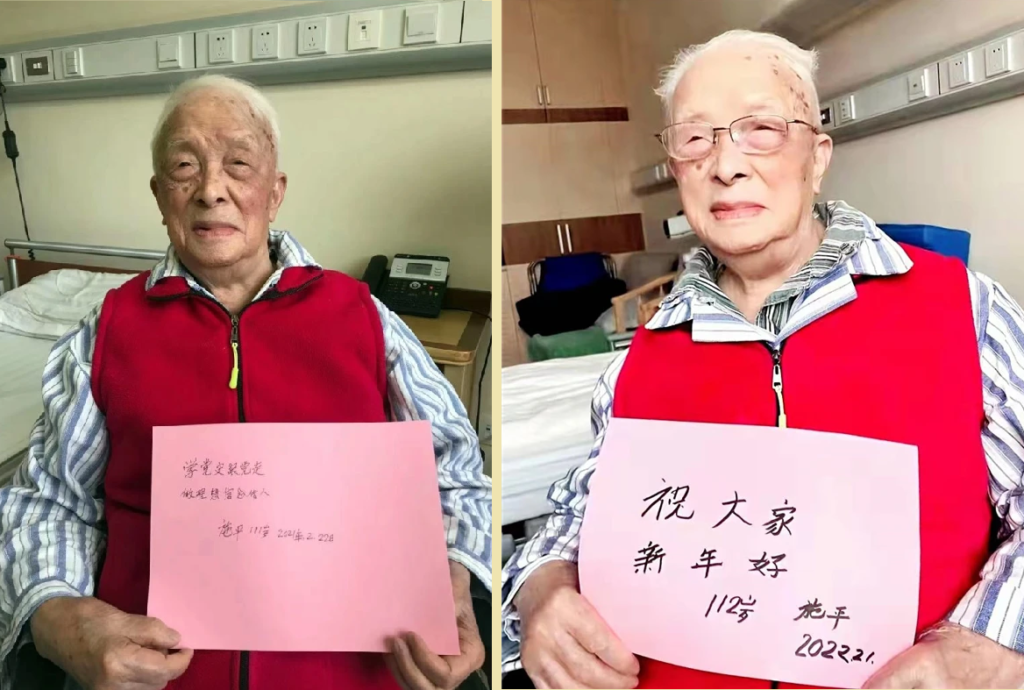 学党史跟党走
做理想信念传人
施平 111岁 2021年2.22日
祝大家
新年好
112岁 施平
2022.2.1.